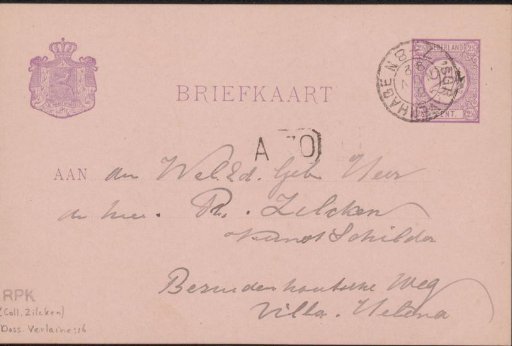 NEDERLAND
CENT
BRIEFKAART
A 70
AAN den Wel.Ed. Geb Heer
den heer. Ph. Zilcken
Kunst Schilder
Bezuidenhoutsche Weg
Villa. Helena
RPK
(Coll. Zilcken)
Doss. Verlaine